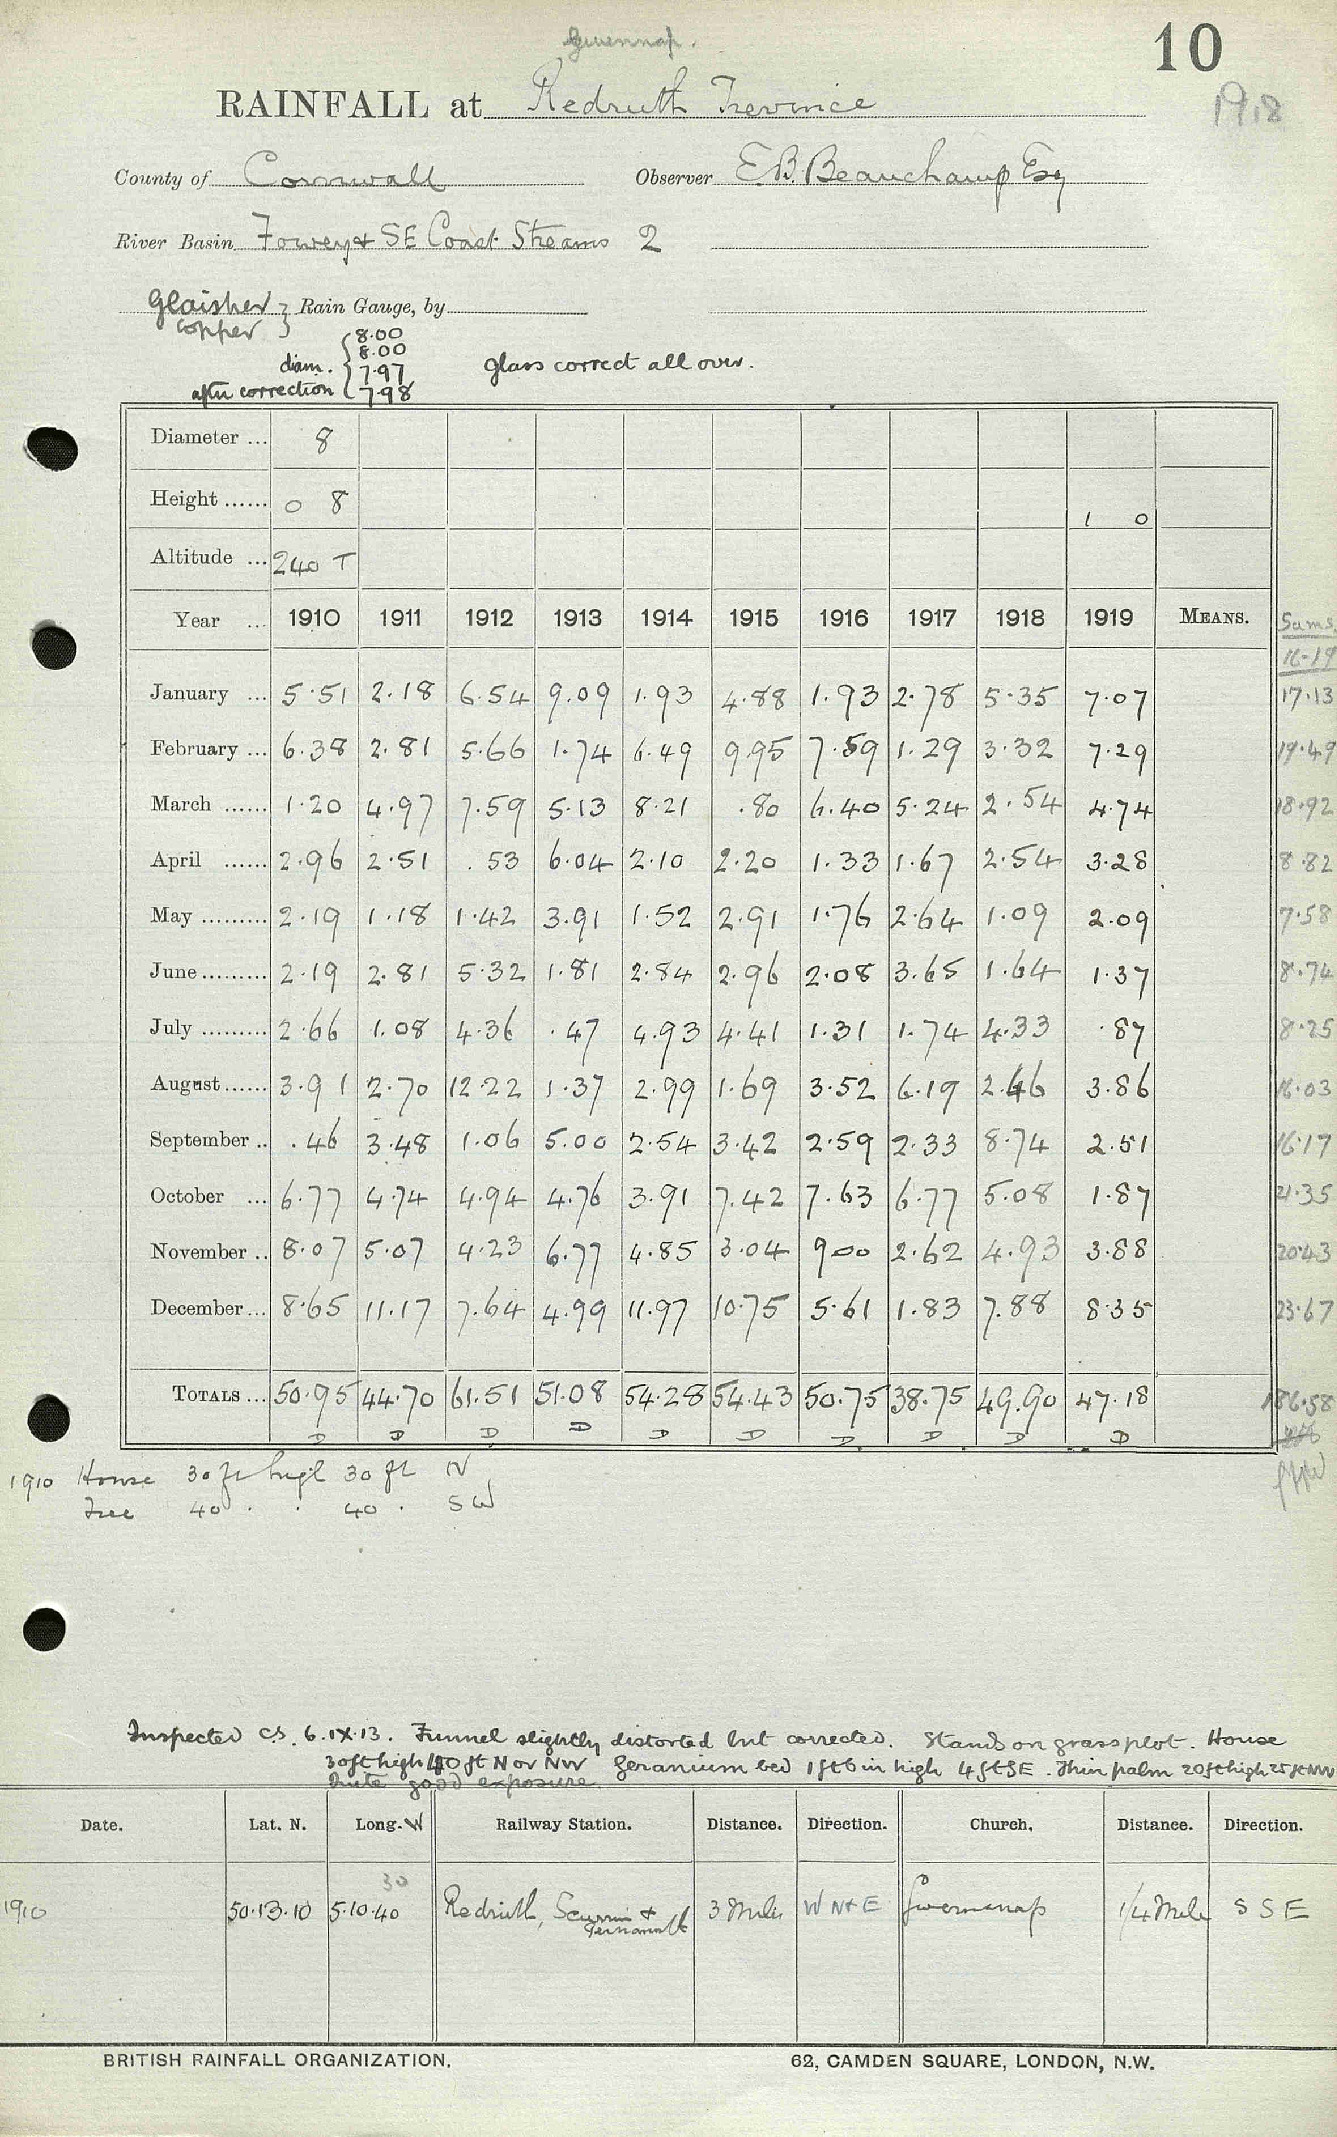 Gwennap.
10
RAINFALL at Redruth Trevince
1918
County of Cornwall Observer E.B. Beauchamp Esq
River Basin Fowey & SE Coast Streams 2
Glaisher } Rain Gauge, by
copper }
diam. { 8.00 8.00 7.97
after correction 7.98
glass correct all over.
Diameter ... 8
Height ...... 0 8 1 0
Altitude ... 240 T
Year ... 1910 1911 1912 1913 1914 1915 1916 1917 1918 1919 MEANS. Sums 16-19
January ... 5.51 2.18 6.54 9.09 1.93 4.88 1.93 2.78 5.35 7.07 17.13
February ... 6.38 2.81 5.66 1.74 6.49 9.95 7.59 1.29 3.32 7.29 19.49
March ...... 1.20 4.97 7.59 5.13 8.21 .80 6.40 5.24 2.54 4.74 18.92
April ...... 2.96 2.51 .53 6.04 2.10 2.20 1.33 1.67 2.54 3.28 8.82
May ......... 2.19 1.18 1.42 3.91 1.52 2.91 1.76 2.64 1.09 2.09 7.58
June ......... 2.19 2.81 5.32 1.81 2.84 2.96 2.08 3.65 1.64 1.37 8.74
July ......... 2.66 1.08 4.36 .47 4.93 4.41 1.31 1.74 4.33 .87 8.25
August ...... 3.91 2.70 12.22 1.37 2.99 1.69 3.52 6.19 2.46 3.86 16.03
September .. .46 3.48 1.06 5.00 2.54 3.42 2.59 2.33 8.74 2.51 16.17
October ... 6.77 4.74 4.94 4.76 3.91 7.42 7.63 6.77 5.08 1.87 21.35
November .. 8.07 5.07 4.23 6.77 4.85 3.04 9.00 2.62 4.93 3.88 20.43
December ... 8.65 11.17 7.64 4.99 11.97 10.75 5.61 1.83 7.88 8.35 23.67
TOTALS ... 50.95 44.70 61.51 51.08 54.28 54.43 50.75 38.75 49.90 47.18 186.58
D D D D D D D D D D
1910 House 30 ft high 30 ft N
Tree 40 . . 40 . SW
Inspected C.S. 6.IX.13. Funnel slightly distorted but corrected. Stands on grass plot. House
30ft high 40 ft N or NW Geranium bed 1ft 6in high 4ft SE. Thin palm 20ft high 25ft NW
Quite good exposure.
Date. Lat. N. Long. W Railway Station. Distance. Direction. Church. Distance. Direction.
30
1910 50.13.10 5.10.40 Redruth, Scurrier & 3 Miles W N & E Gwennap 1/4 Mile S S E
BRITISH RAINFALL ORGANIZATION. 62, CAMDEN SQUARE, LONDON, N.W.